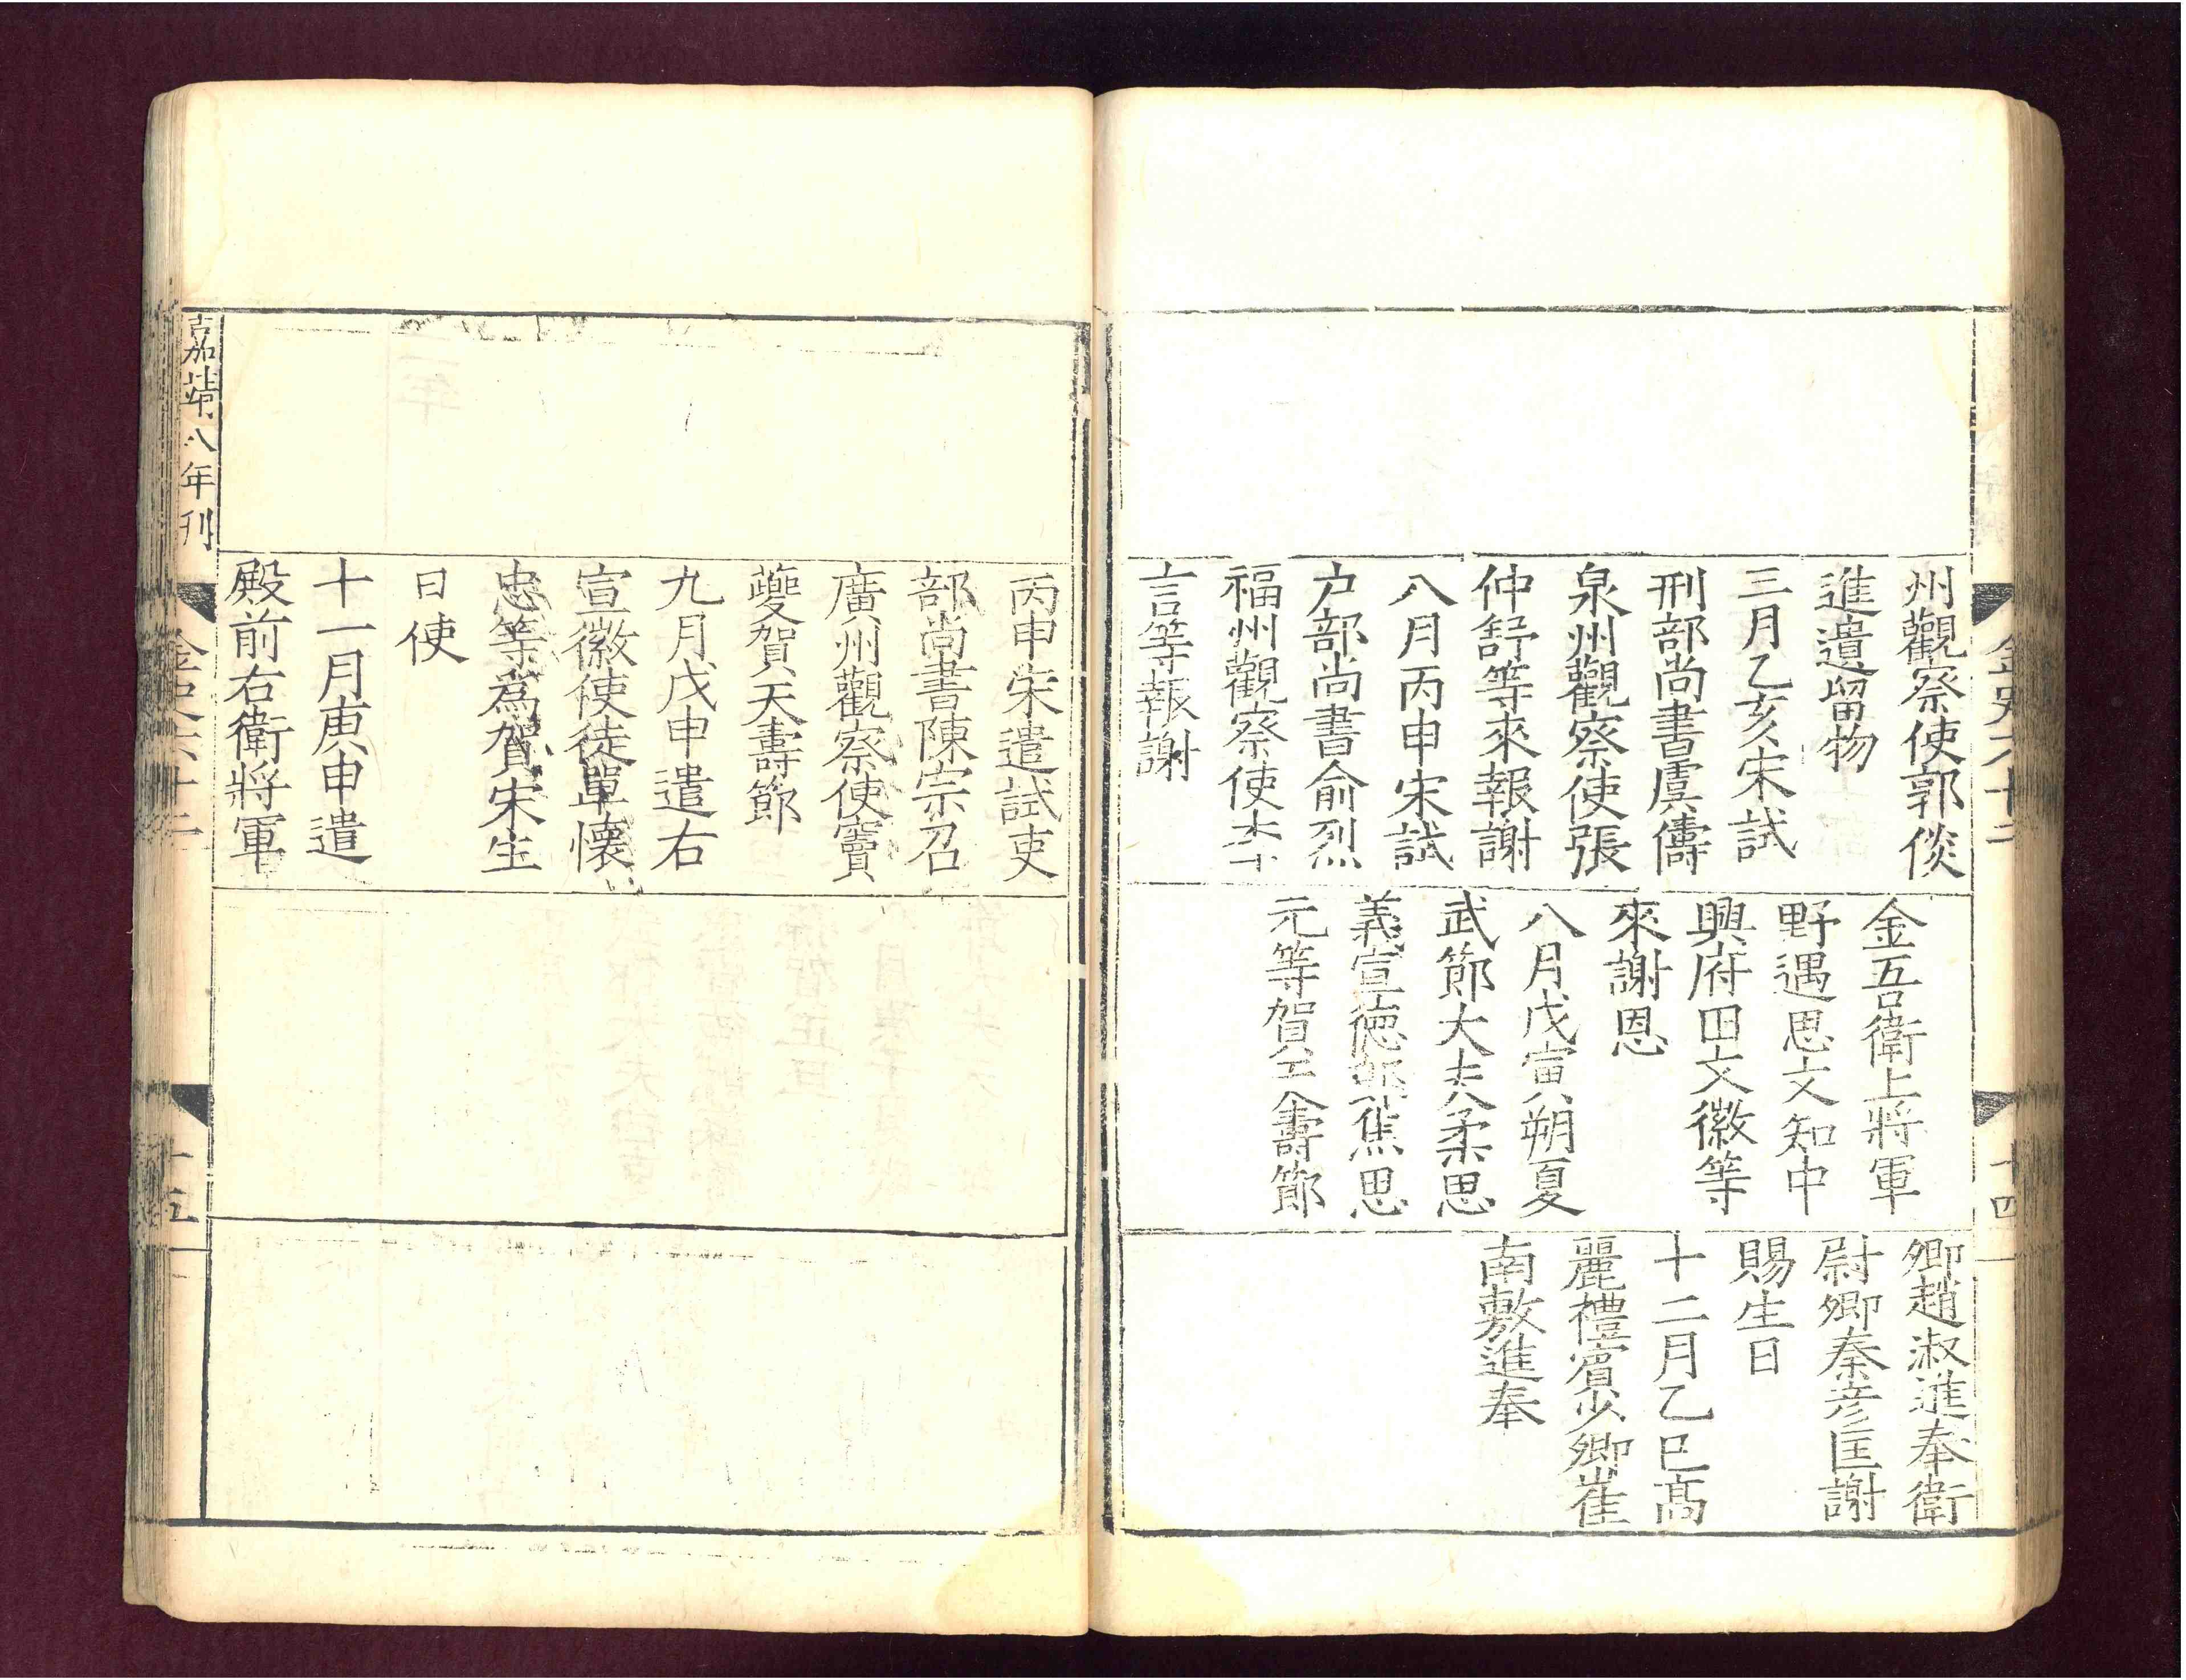 金史六十二
十四
州觀察使郭倓
進遺留物
三月乙亥宋試
刑部尚書虞儔
泉州觀察使張
仲舒等來報謝
八月丙申宋試
户部尚書俞烈
福州觀察使李
言等報謝
金吾衛上將軍
野遇思文知中
興府田文徽等
來謝恩
八月戊寅朔夏
武節大夫柔思
義宣德郎焦思
元等賀天壽節
卿趙淑進奉衛
尉卿秦彦匡謝
賜生日
十二月乙巳髙
麗禮賓少卿崔
南敷進奉
丙申宋遣試吏
部尚書陳宗召
廣州觀察使竇
夔賀天壽節
九月戊申遣右
宣徽使徒單懷
忠等為賀宋生
日使
十一月庚申遣
殿前右衛將軍
嘉靖八年刊
金史六十二
十五